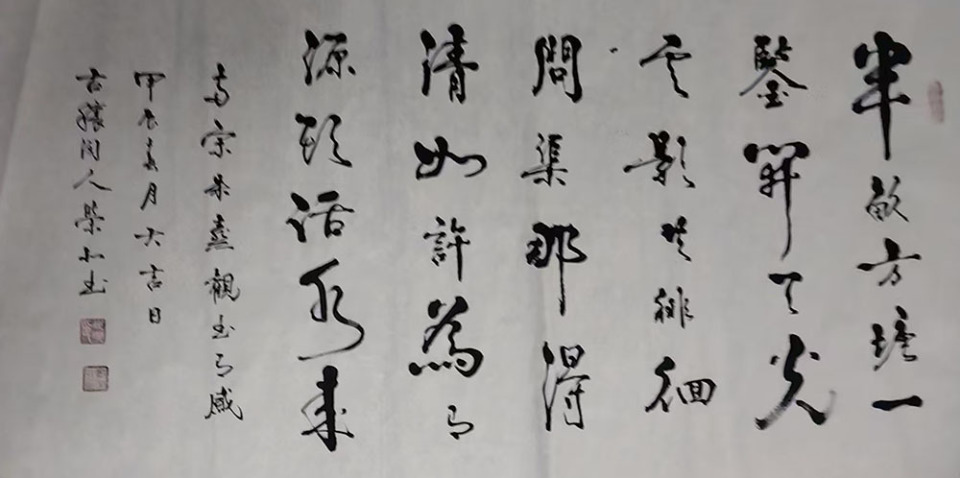 半畝方塘一
鑒開天光
云影共徘徊
問渠那得
清如許為有
源頭活水來
南宋朱熹觀書有感
甲辰春月大吉日
古穰閑人榮書